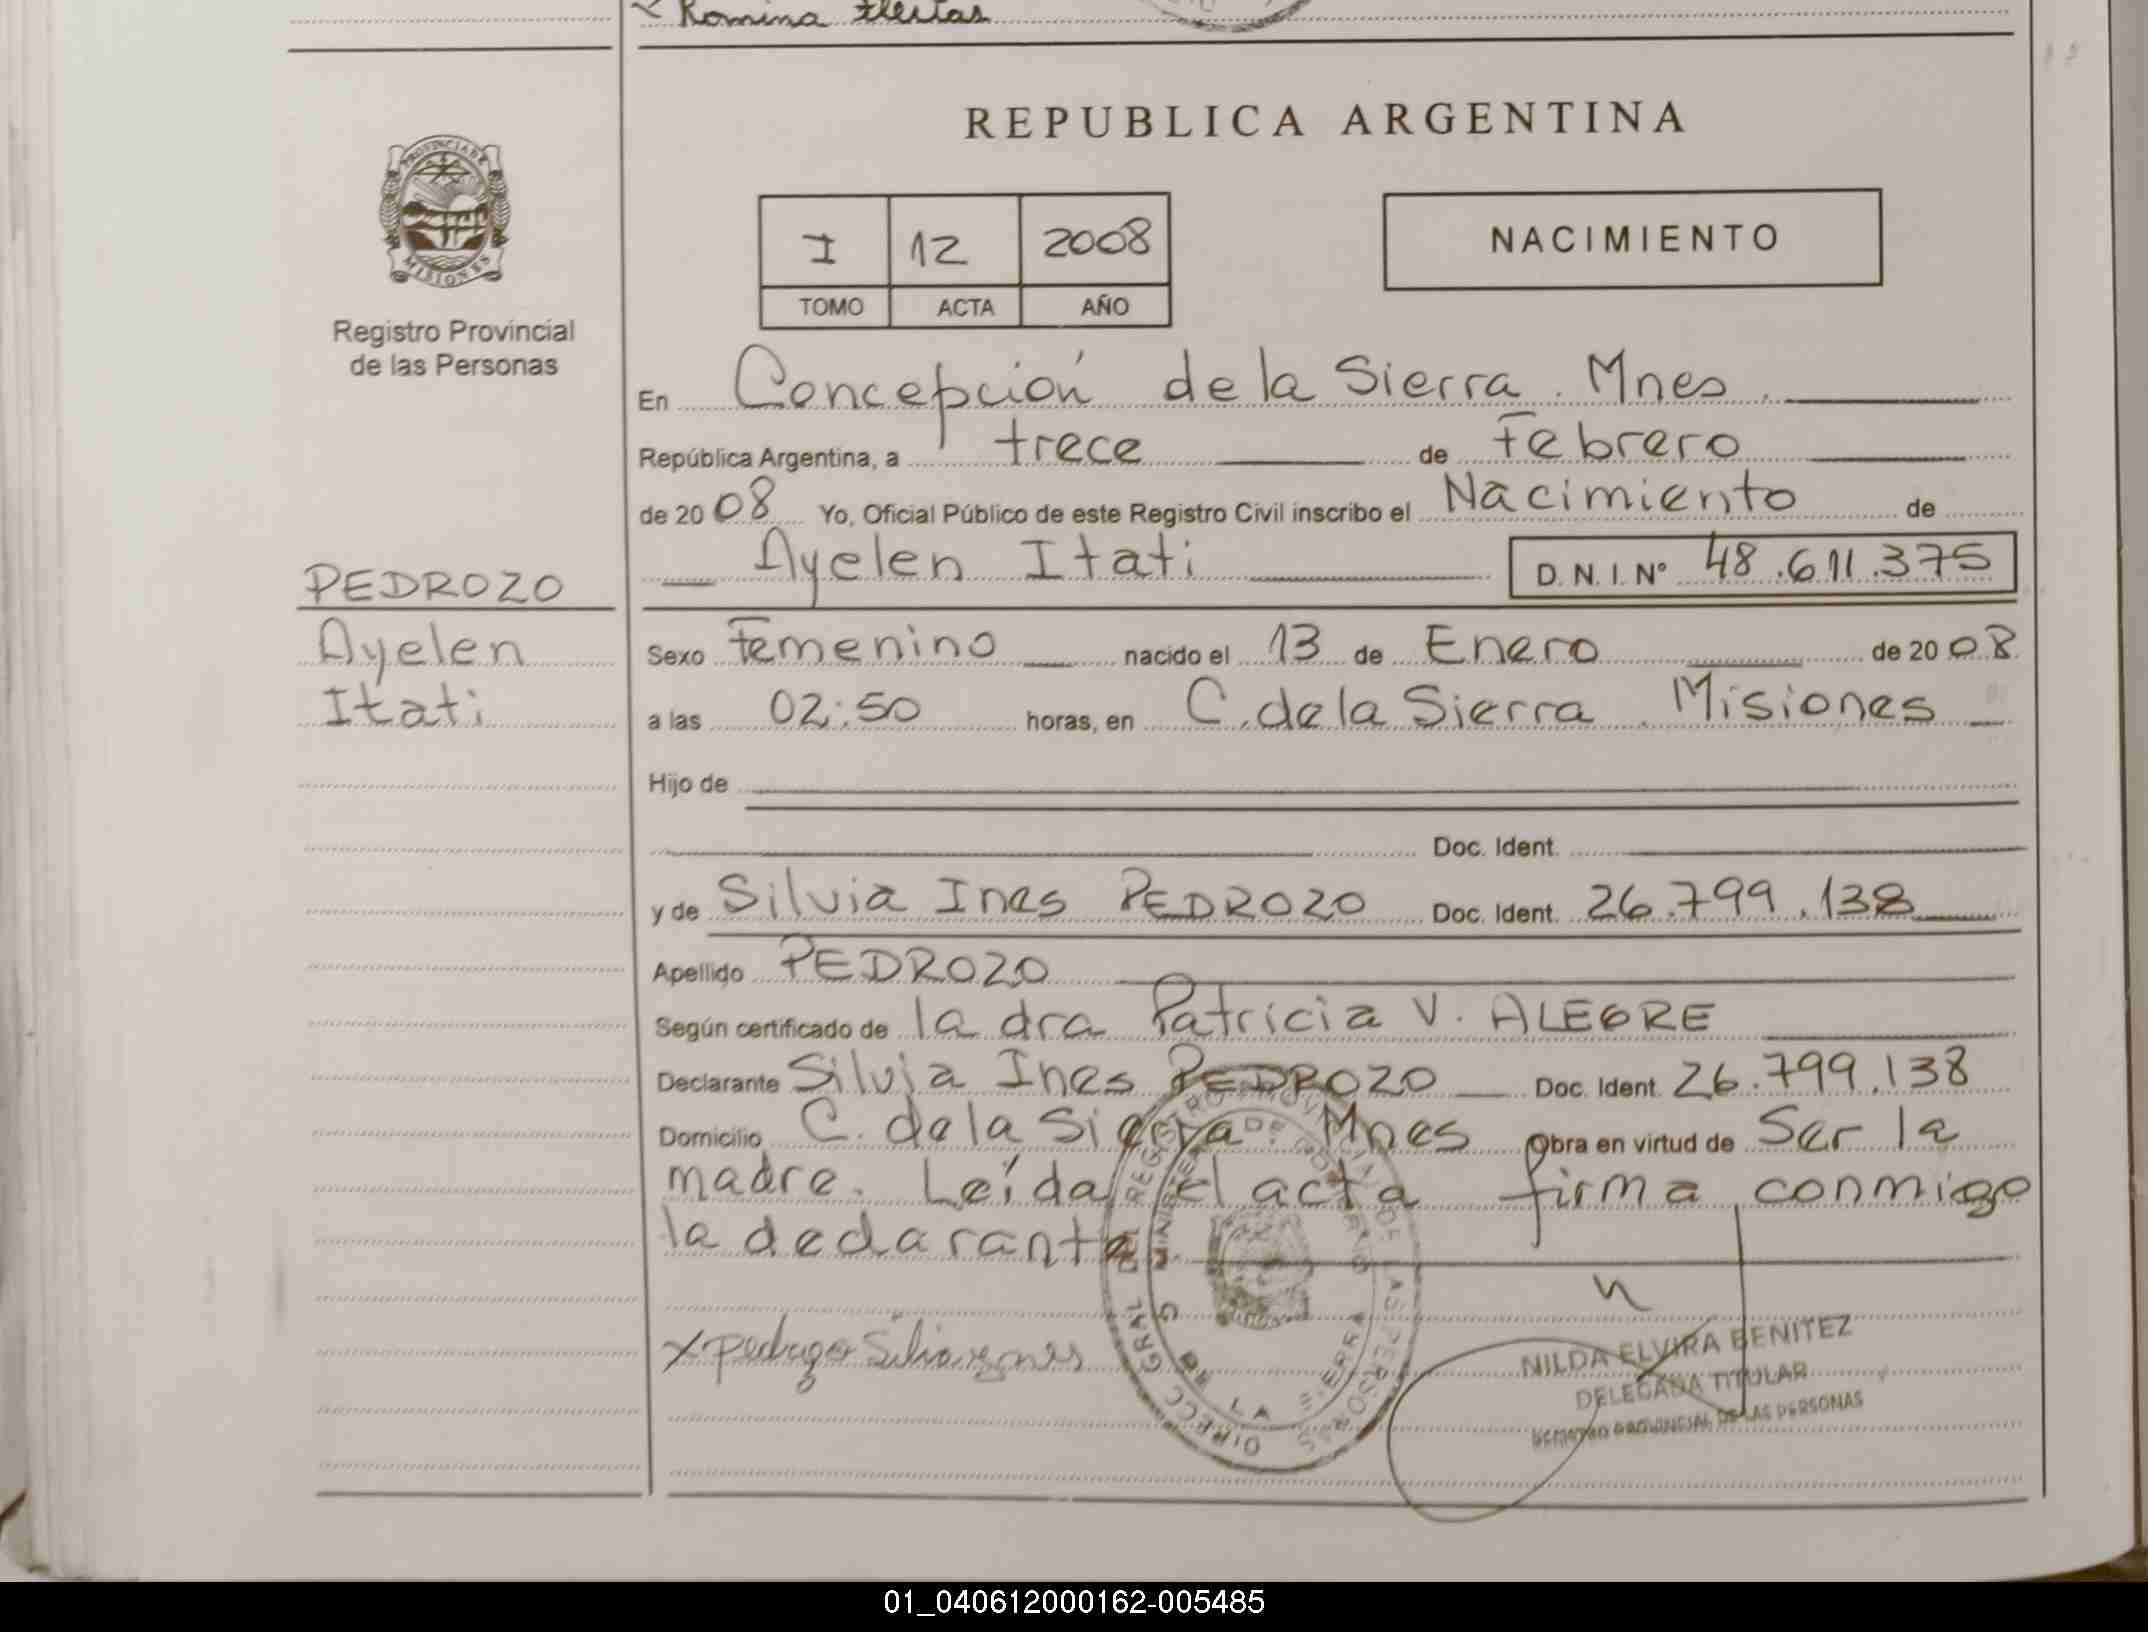 Romina
REPUBLICA ARGENTINA
PROVINCIA DE
MISIONES
Registro Provincial
de las Personas
I 12 2008
TOMO ACTA AÑO
NACIMIENTO
En Concepción de la Sierra. Mnes.
República Argentina, a trece de Febrero
de 2008 Yo, Oficial Público de este Registro Civil inscribo el Nacimiento de
Ayelen Itati D.N.I. Nº 48.611.375
PEDROZO
Ayelen
Itati
Sexo Femenino nacido el 13 de Enero de 2008
a las 02:50 horas, en C. de la Sierra. Misiones
Hijo de
Doc. Ident.
y de Silvia Ines PEDROZO Doc. Ident. 26.799.138
Apellido PEDROZO
Según certificado de la dra Patricia V. ALEGRE
Declarante Silvia Ines PEDROZO Doc. Ident. 26.799.138
Domicilio C. de la Sierra. Mnes Obra en virtud de Ser la
madre. Leída el acta firma conmigo
la declarante.
NILDA ELVIRA BENITEZ
DELEGADA TITULAR
REGISTRO PROVINCIAL DE LAS PERSONAS
01_040612000162-005485